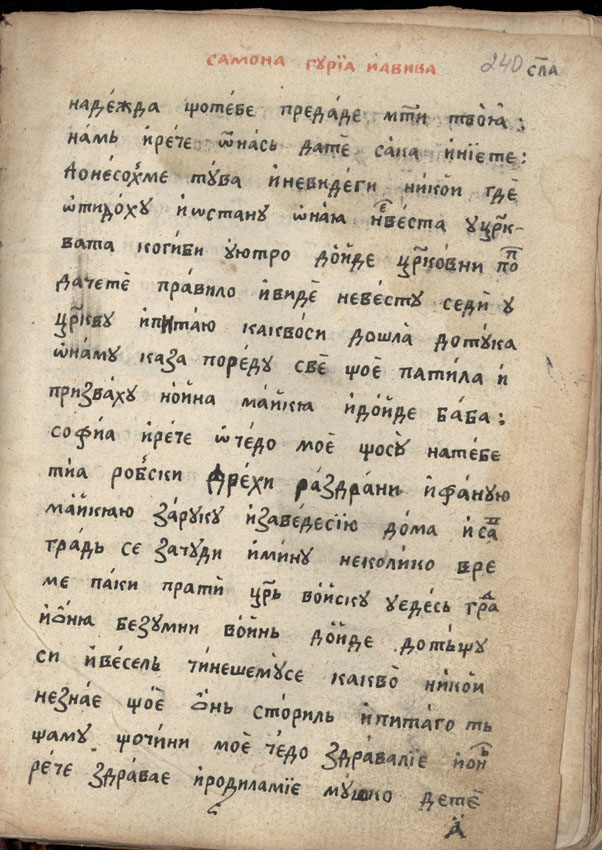 самона гурїа и҆авива 240 сп҃а
надѐжда ѱотѐбе предáде мт҃и твоꙗ̀:
нáмь и҆рѐче ѿнáсь дате̑ сáка и҆нїете:
донѐсохме тꙋ̀ва и҆невидѐги нико̀и где̑
ѿтидо̀хꙋ и҆ѡстанꙋ ѡ҆нáꙗ невѐста ꙋцр҃к-
вата когиби ꙋютро до̀йде цр҃ко̀вни поп
дачете̑ прáвило и҆виде̑ невѐстꙋ седѝ ꙋ
цр҃квꙋ и҆питáю каквоси дошлà дотꙋка
ѡ҆нáмꙋ каза порѐдꙋ све̑ ѱое̑ патѝла и҆
призвáхꙋ но̀йна мáйкю и҆до̀йде бáба:
софиа и҆рѐче ѡ҆чѐдо моѐ ѱосꙋ̀ натѐбе
тиа робски дрѐхи рáздрáни и҆фáнꙋю
мáйкюю зáрꙋкꙋ и҆завѐдесїю до́ма и҆сап
грáдь се зачꙋди и҆минꙋ неколико вре
ме пáки пратѝ цр҃ь во̀йскꙋ ꙋедѐсь град
и҆о̀ню безꙋмни во̀йнь до̀йде дотьѱꙋ
си и҆вѐсель чѝнешемꙋсе какво̀ нико̀и
незнáе ѱое̑ о̀нь сто̀риль и҆питáго ть
ѱамꙋ ѱочѝни моѐ чѐдо здрáвалїе и҆онь
рѐче здрáвае и҆родиламїе мꙋшко дете̑